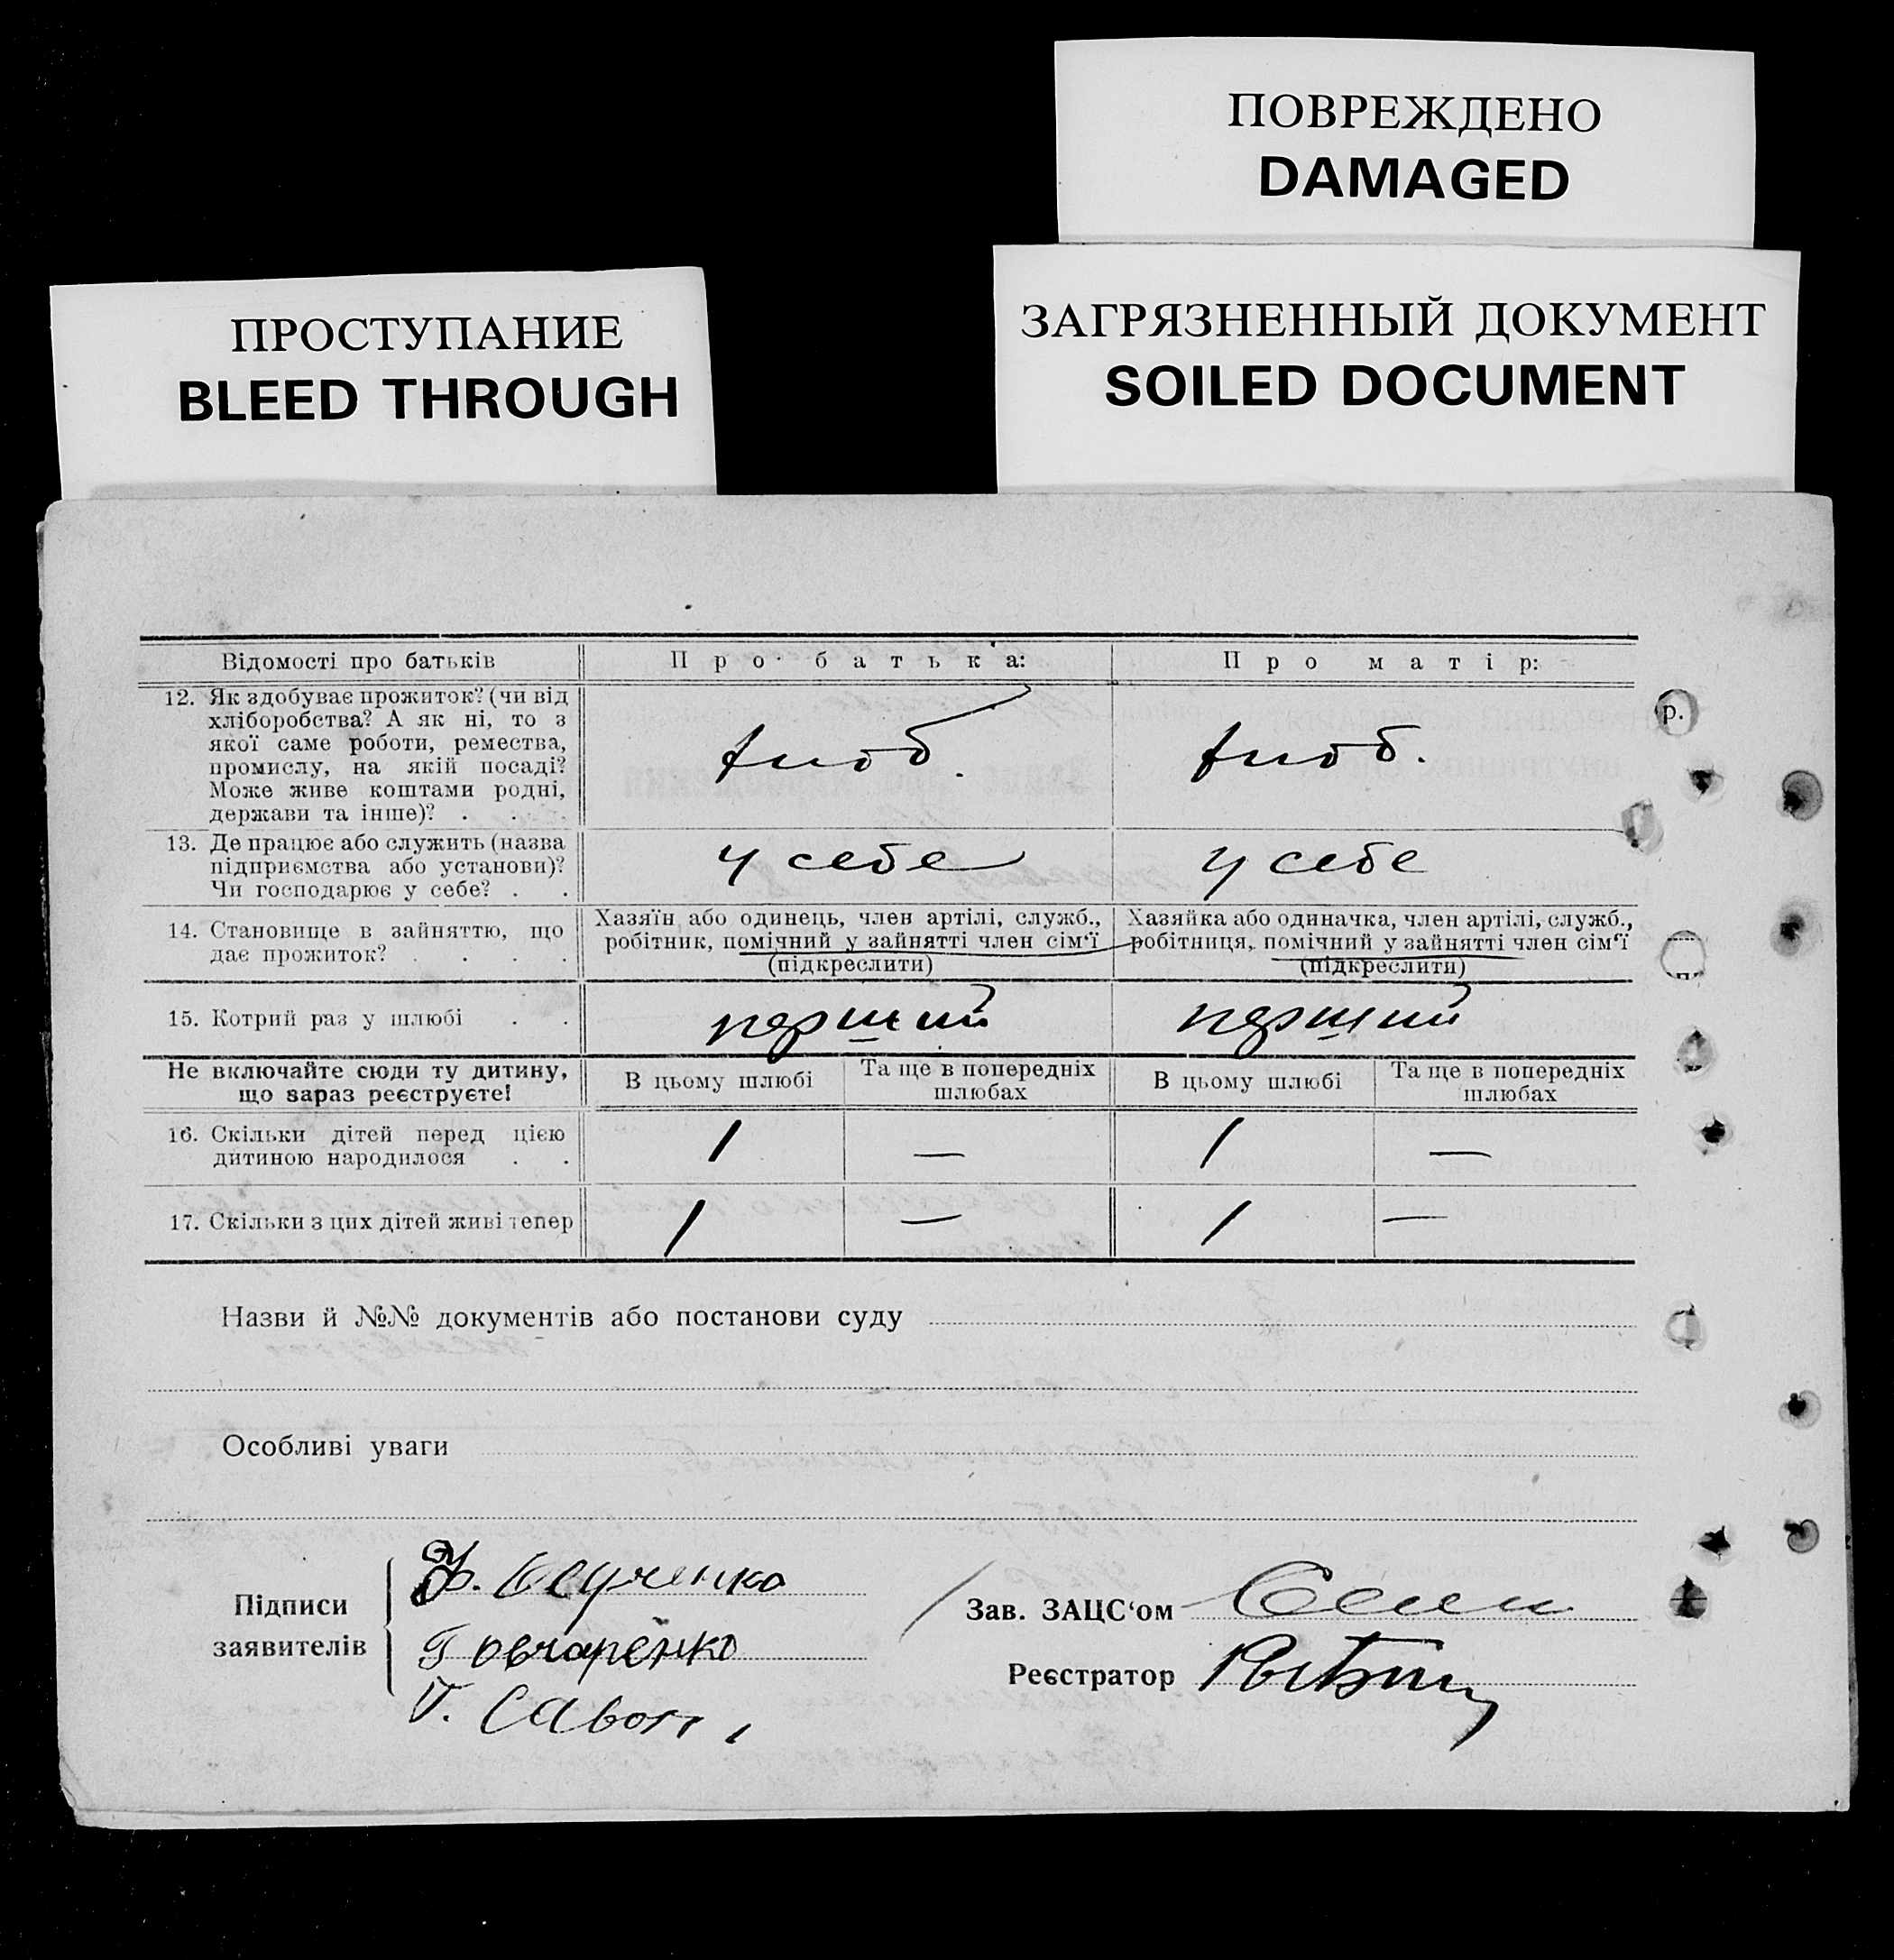 ПОВРЕЖДЕНО
DAMAGED
ПРОСТУПАНИЕ
BLEED THROUGH
ЗАГРЯЗНЕННЫЙ ДОКУМЕНТ
SOILED DOCUMENT
Відомості про батьків
Про батька:
Про матір:
12. Як здобуває прожиток? (чи від
хліборобства? А як ні, то з
якої саме роботи, ремества,
промислу, на якій посаді?
Може живе коштами родні,
держави та інше)? . . .
хліб.
хліб.
р.
13. Де працює або служить (назва
підприємства або установи)?
Чи господарює у себе? . .
у себе
у себе
14. Становище в зайняттю, що
дає прожиток? . . . .
Хазяїн або одинець, член артілі, служб.,
робітник, помічний у зайнятті член сім'ї
(підкреслити)
Хазяйка або одиначка, член артілі, служб.,
робітниця, помічний у зайнятті член сім'ї
(підкреслити)
15. Котрий раз у шлюбі . .
перший
перший
Не включайте сюди ту дитину,
що зараз реєструєте!
В цьому шлюбі
Та ще в попередніх
шлюбах
В цьому шлюбі
Та ще в попередніх
шлюбах
16. Скільки дітей перед цією
дитиною народилося . .
1
—
1
—
17. Скільки з цих дітей живі тепер
1
—
1
—
Назви й №№ документів або постанови суду
Особливі уваги
Підписи
заявителів
Гончаренко
Зав. ЗАЦС'ом
Реєстратор